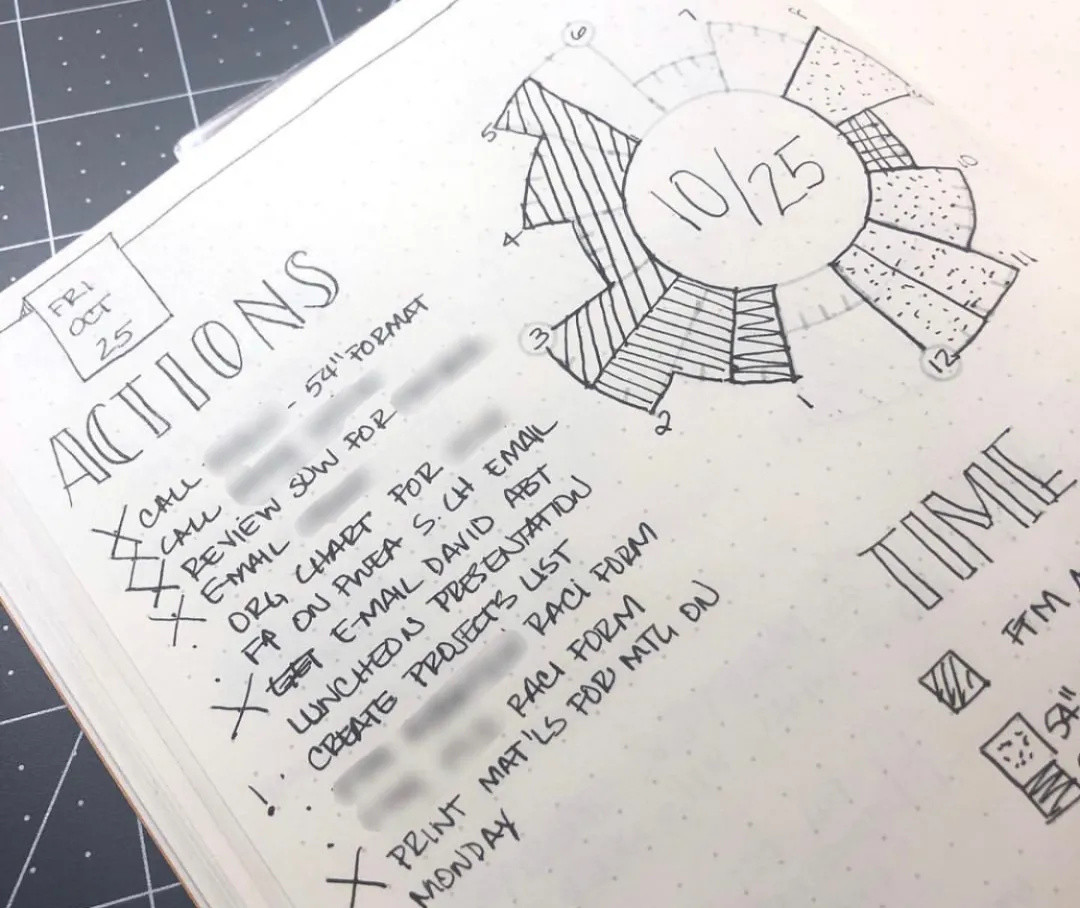 FRI
OCT
25
ACTIONS
CALL - 54" FORMAT
CALL
REVIEW SOW FOR
EMAIL
ORG CHART FOR
FP ON PWEA S. CH EMAIL
E-MAIL DAVID ABT
LUNCHEON PRESENTATION
CREATE PROJECTS LIST
RACI FORM
RACI FORM
PRINT MAT'LS FOR MTG ON
MONDAY
10/25
1
2
3
4
5
6
7
10
11
12
TIME
54"